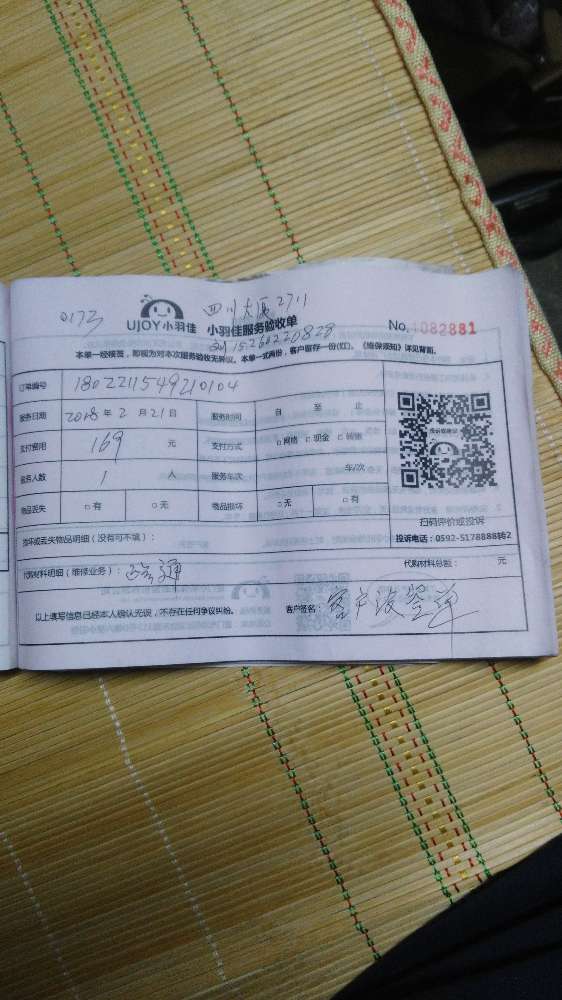 0173
四川大厦2711
UJOY小羽佳 小羽佳服务验收单
No. 1082881
刘 15260220828
本单一经接签，即视为对本次服务验收无异议。本单一式两份，客户留存一份(红)。《维保须知》详见背面。
订单编号 1802211549210104
服务日期 2018 年 2 月 21 日 服务时间 自 至 止
支付费用 169 元 支付方式 □网络 □现金 □转账
服务人数 1 人 服务车次 车/次
物品丢失 □有 □无 物品损坏 □无 □有
投诉或建议
扫码评价或投诉
投诉电话：0592-5178888转2
损坏或丢失物品明细（没有可不填）：
代购材料明细（维修业务）： 疏通 代购材料总额： 元
以上填写信息已经本人确认无误，不存在任何争议纠纷。 客户签名： 客户没签单